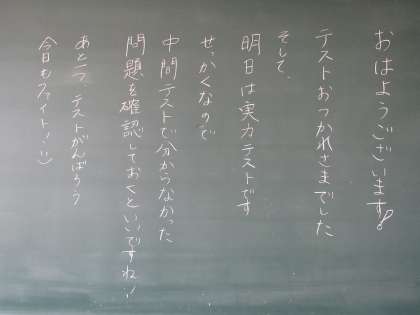 おはようございます!
テストおつかれさまでした
そして、
明日は実力テストです
せっかくなので
中間テストで分からなかった
問題を確認しておくといいですね!
あと一つ、テストがんばろう
今日もファイト!!:)